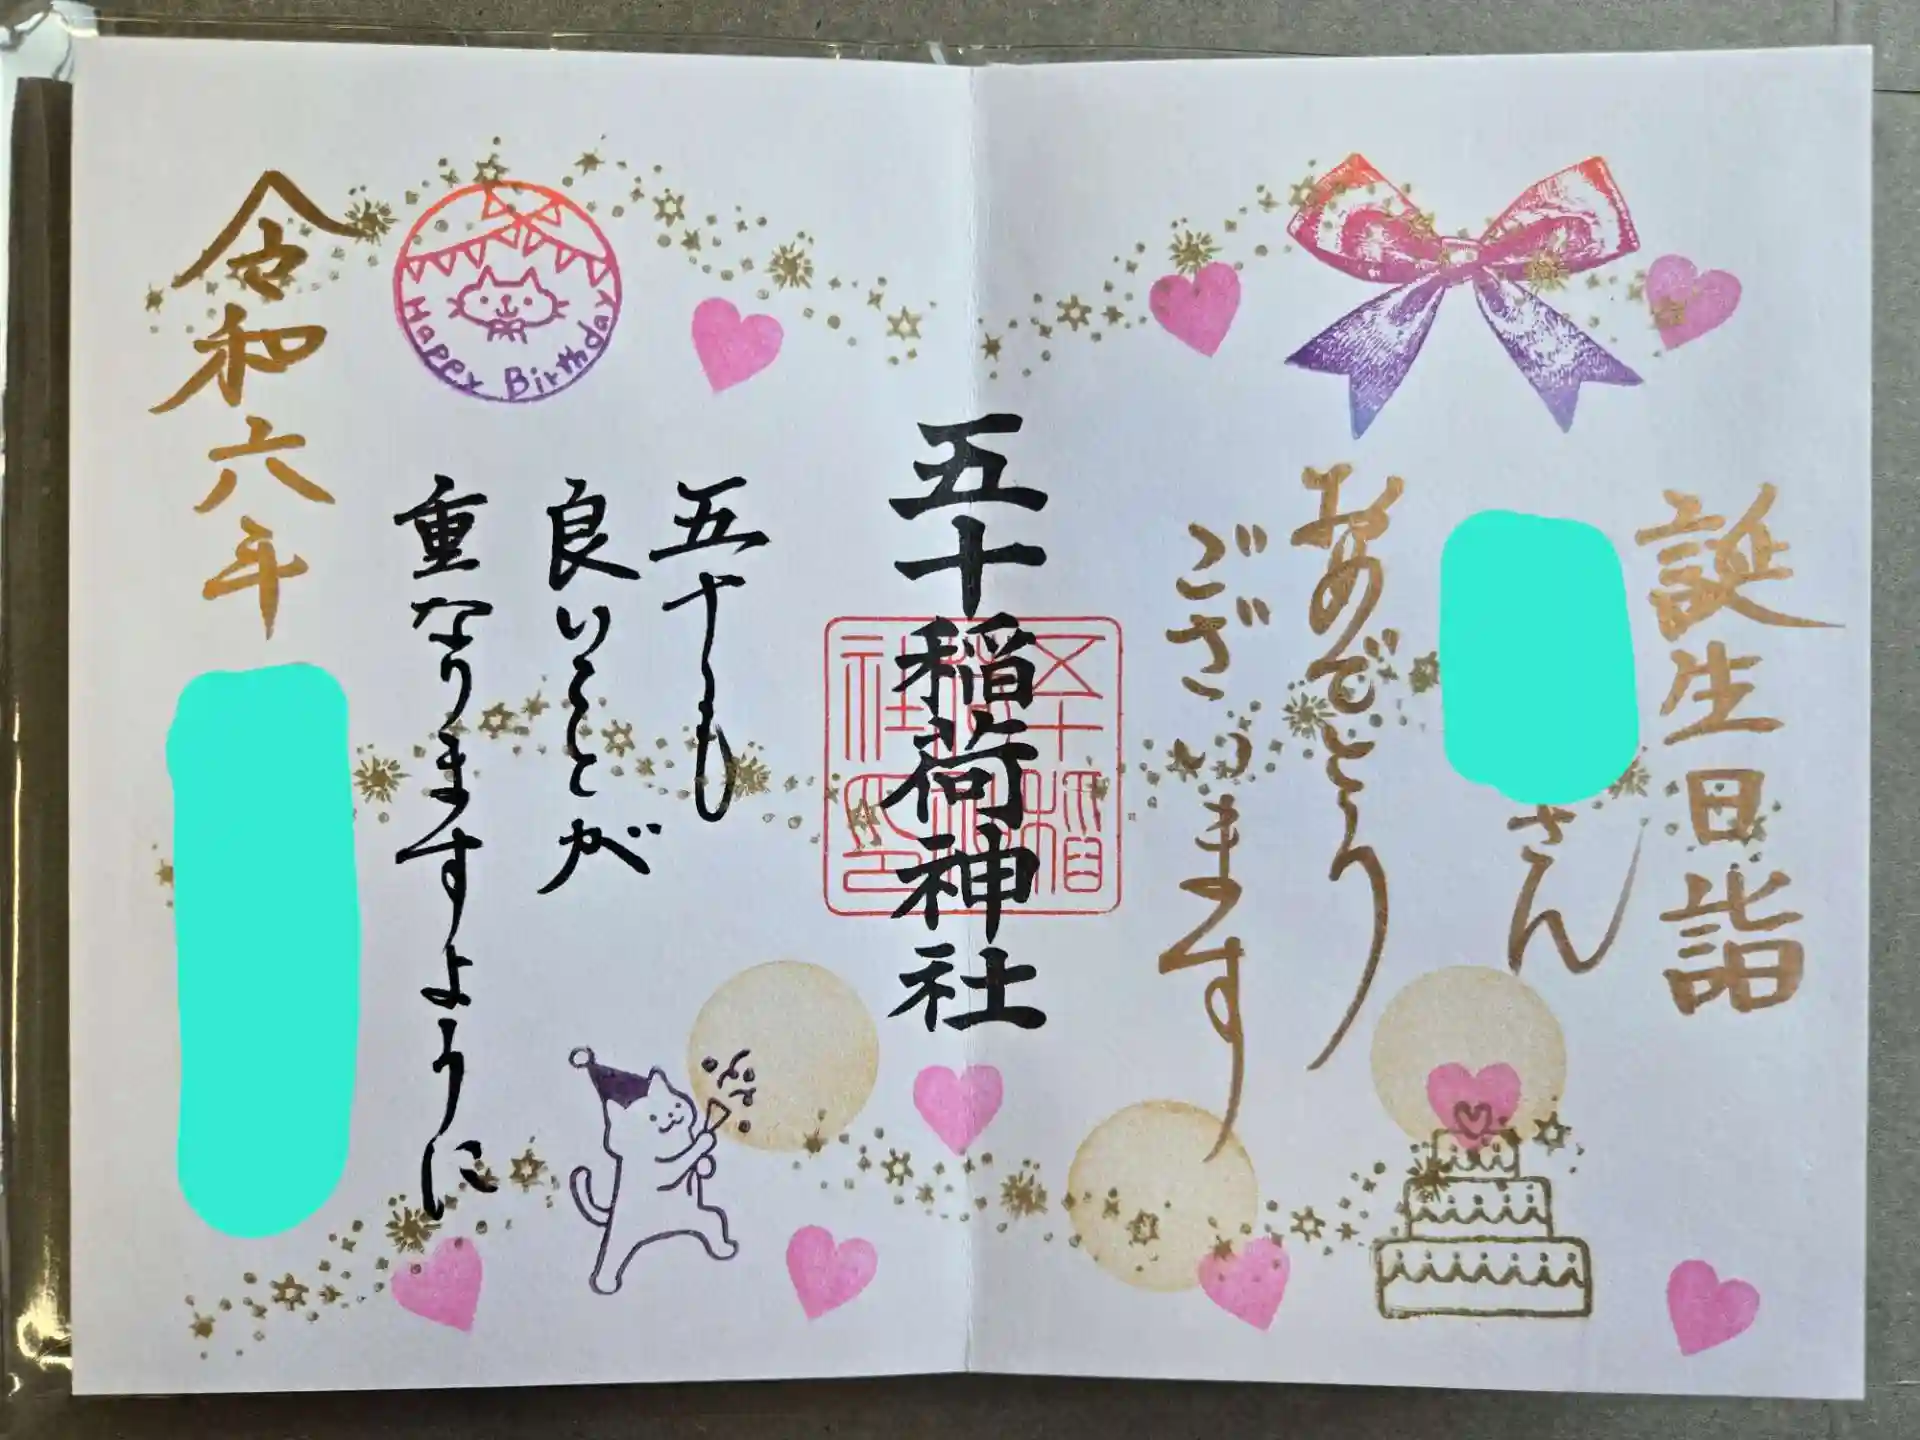 誕生日詣
さん
おめでとう
ございます
五十稲荷神社
五十も
良いことが
重なりますように
Happy Birthday
令和六年